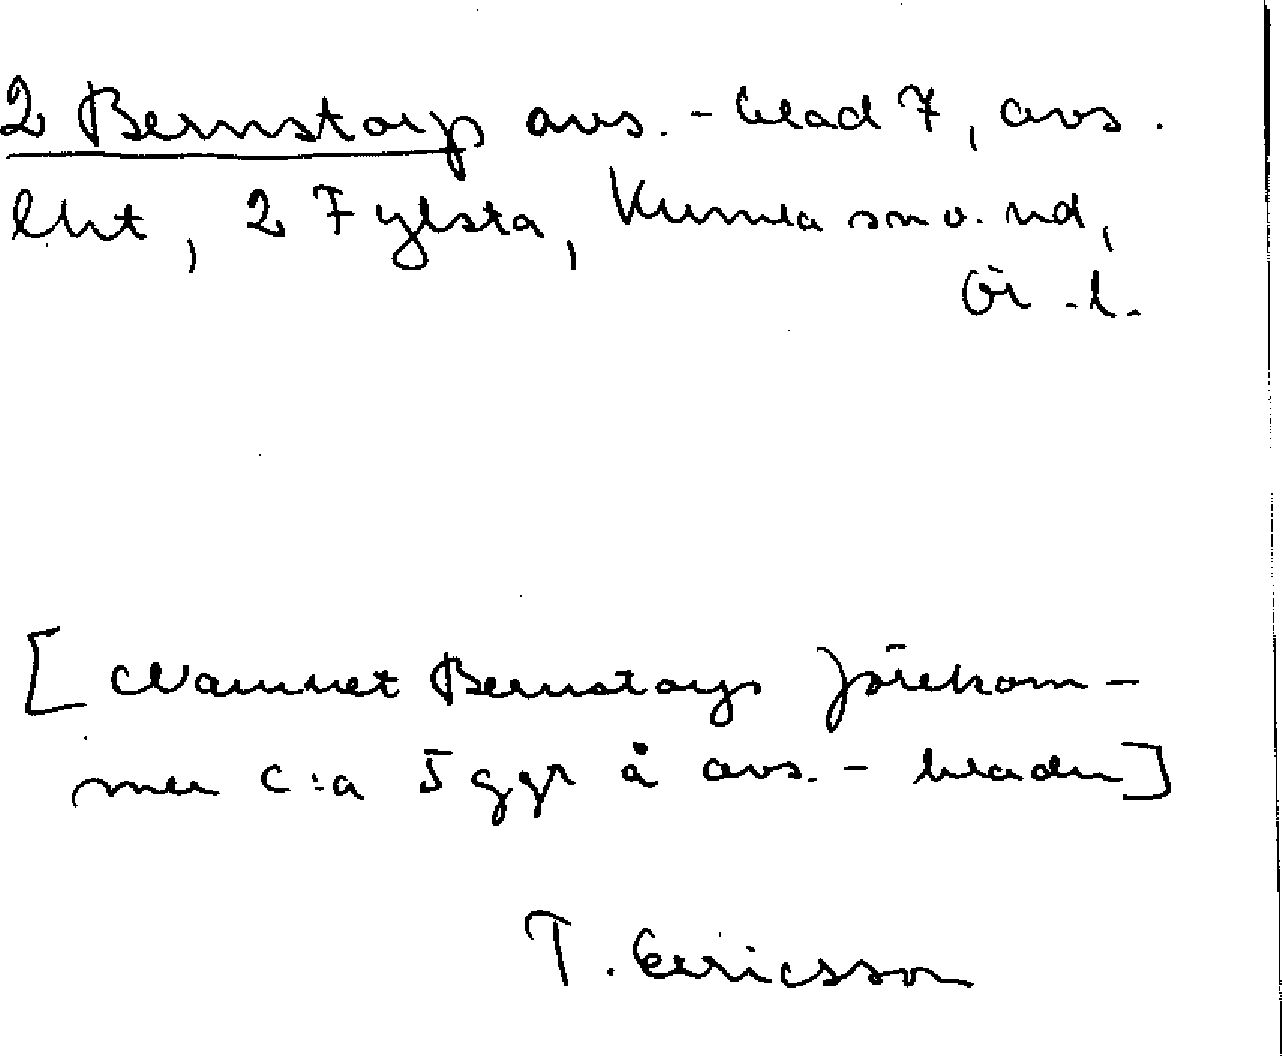 2 Bernstorp avs. - blad 7, avs.
lht, 2 Fylsta, Kumla sn o. hd,
Ör. l.
[Namnet Bernstorps förekom-
mer c:a 5 ggr å avs. - bladen]
T. Ericsson